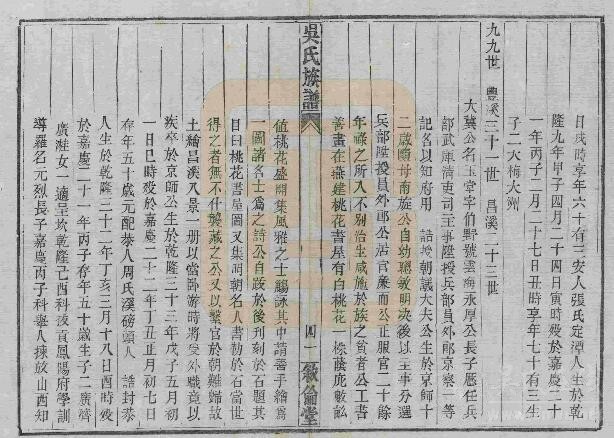 日戌時享年六十有三安人張氏定潭人生於乾
隆九年甲子四月二十四日寅時殁於嘉慶二十
一年丙子二月二十七日丑時享年七十有三生
子二大梅大州
九九世 豐溪三十一世 昌溪二十三世
大冀公名玉堂字伯野號雲海永厚公長子歷任兵
部武庫清吏司主事陞授兵部員外郎京察一等
記名以知府用 誥授朝議大夫公生於京師十
二歲隨母南旋公自幼聰敏明決後以主事分選
兵部陞授員外郎公居官廉而公正服官二十餘
年祿之所入不別治生咸施於族之貧者公工書
善畫在燕建桃花書屋有白桃花一株蔭庇數畝
吳氏族譜
四一
敘倫堂
值桃花盛開集風雅之士觴詠其中請善手繪為
一圖諸名士為之詩公自跋於後刋刻於石題其
目曰桃花書屋圖又集明朝名人書勒於石當世
得之者無不什襲藏之公又以繫官於朝難歸故
土繪昌溪八景一册以當臥游時將受外職竟以
疾卒於京師公生於乾隆三十三年戊子五月初
一日巳時殁於嘉慶二十二年丁丑正月初七日
存年五十歲元配恭人周氏溪磅頭人 誥封恭
人生於乾隆三十二年丁亥三月十八日酉時殁
於嘉慶二十一年丙子存年五十歲生子二廣嶅
廣 女一適呈坎乾隆己酉科拔貢鳳陽府學訓
導羅名元烈長子嘉慶丙子科舉人揀放山西知